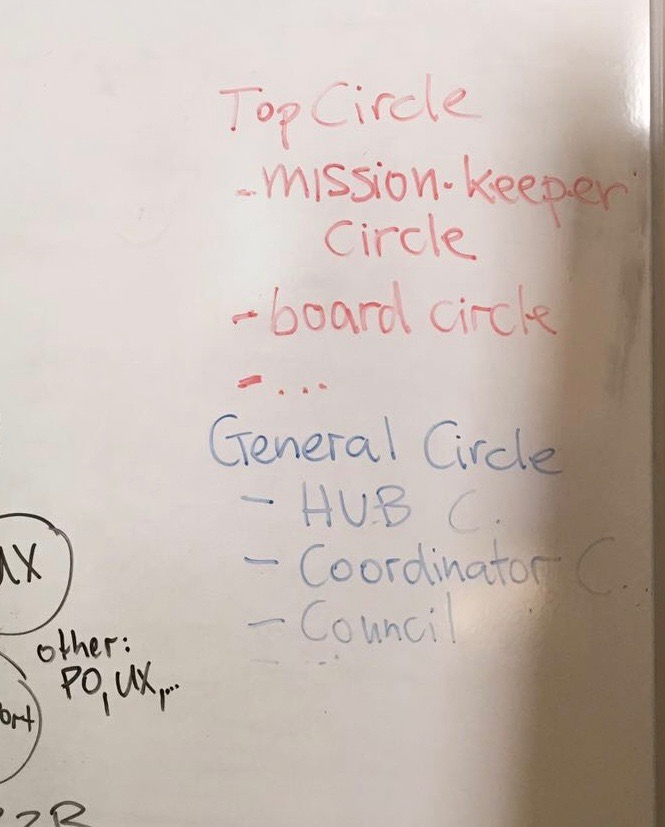 Top Circle
- mission-keeper
Circle
- board circle
- ...
General Circle
- HUB C.
- Coordinator C.
- Council
UX
other:
PO, UX, ...